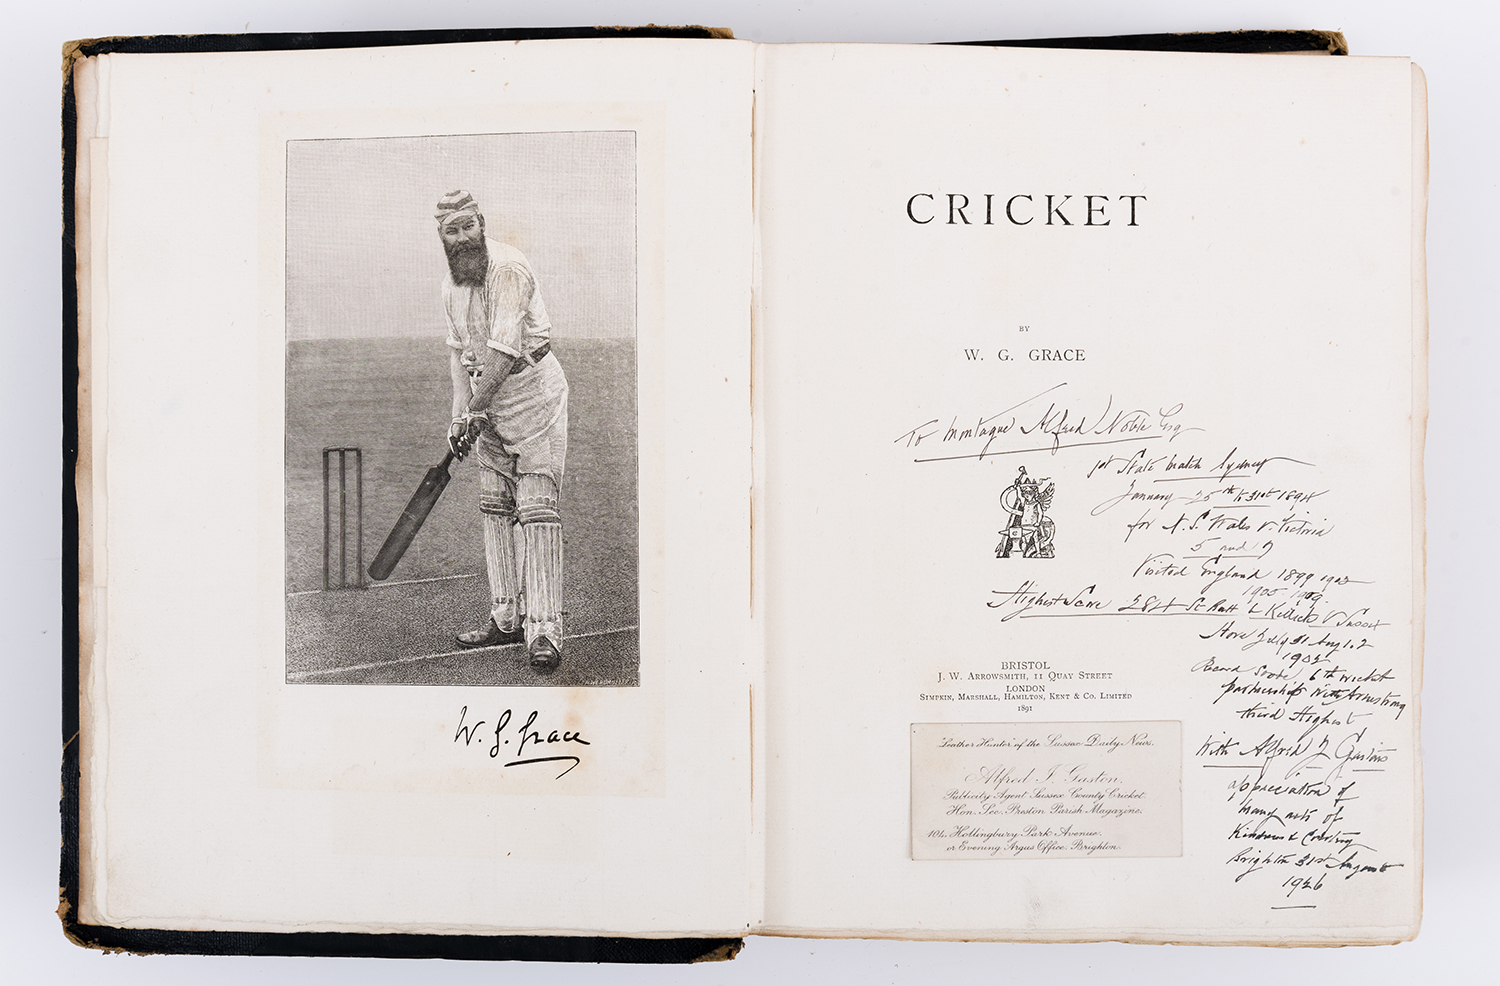 W. G. Grace
CRICKET
BY
W. G. GRACE
To Montague Alfred Noble Esq
1st State Match Sydney
January 25th to 31st 1894
for N. S. Wales v. Victoria
5 and 7
Visited England 1899 1902
1905 1909
Highest Score 284 St Batt & Killick v Sussex
Hove July 31 Aug 1.2
1902
Record Score 6th wicket
partnership with Armstrong
third Highest
With Alfred J Gaston's
appreciation of
many acts of
Kindness & Courtesy
Brighton 31st August
1926
BRISTOL
J. W. Arrowsmith, 11 Quay Street
LONDON
Simpkin, Marshall, Hamilton, Kent & Co. Limited
1891
"Leather Hunter" of the Sussex Daily News.
Alfred J. Gaston.
Publicity Agent Sussex County Cricket.
Hon. Sec. Preston Parish Magazine.
104, Hollingbury Park Avenue.
or Evening Argus Office. Brighton.